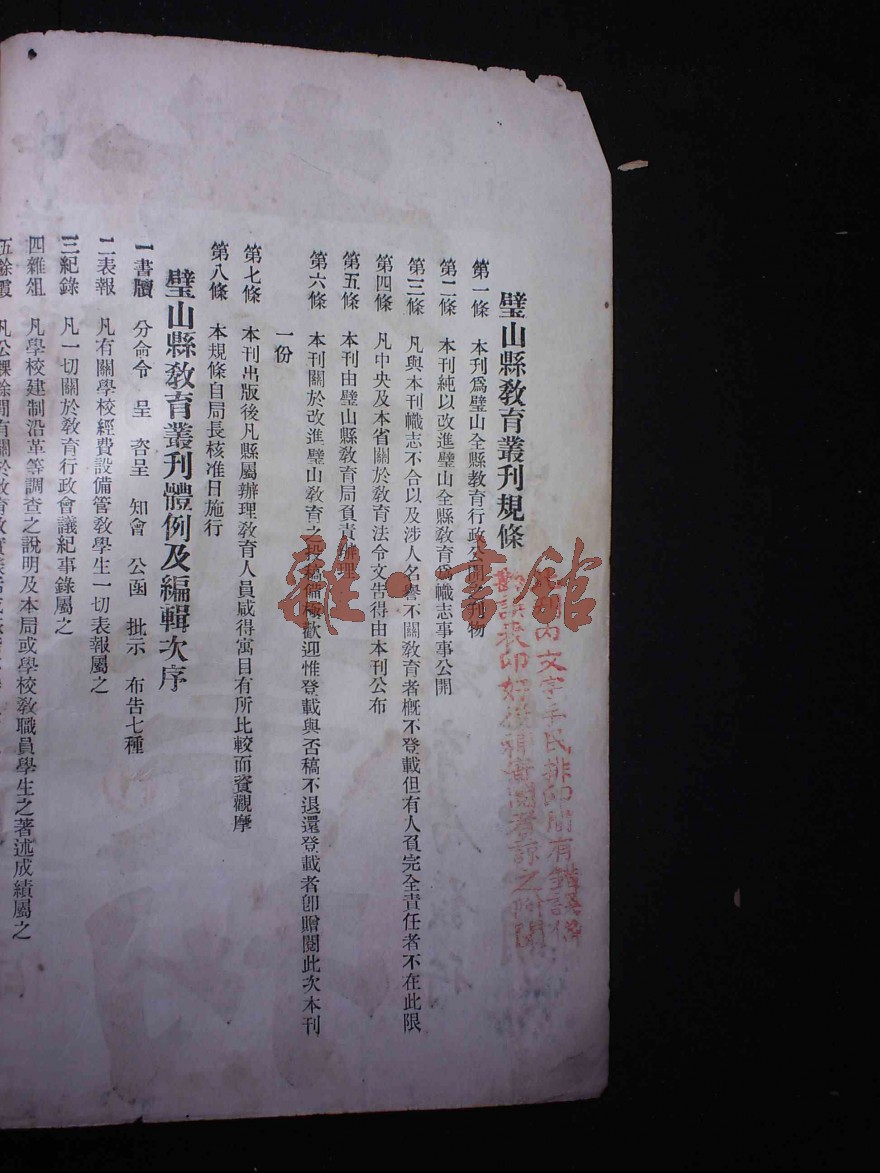 璧山縣敎育叢刊規條
第一條　本刊爲璧山全縣敎育行政公開之刊物
第二條　本刊純以改進璧山全縣敎育爲幟志事事公開
第三條　凡與本刊幟志不合以及涉人名譽不關敎育者槪不登載但有人負完全責任者不在此限
第四條　凡中央及本省關於敎育法令文告得由本刊公布
第五條　本刊由璧山縣敎育局負責辦理
第六條　本刊關於改進璧山敎育之投稿備極歡迎惟登載與否稿不退還登載者卽贈閱此次本刊
一份
第七條　本刊出版後凡縣屬辦理敎育人員咸得寓目有所比較而資觀摩
第八條　本規條自局長核准日施行
璧山縣敎育叢刊體例及編輯次序
一書牘　分命令　呈　咨呈　知會　公函　批示　布告七種
二表報　凡有關學校經費設備管敎學生一切表報屬之
三紀錄　凡一切關於敎育行政會議紀事錄屬之
四雜俎　凡學校建制沿革等調查之說明及本局或學校敎職員學生之著述成績屬之
五餘霞　凡公課餘間有關於敎育
內文字手民排印間有錯誤
印好閱者諒之附聞
雜·書館